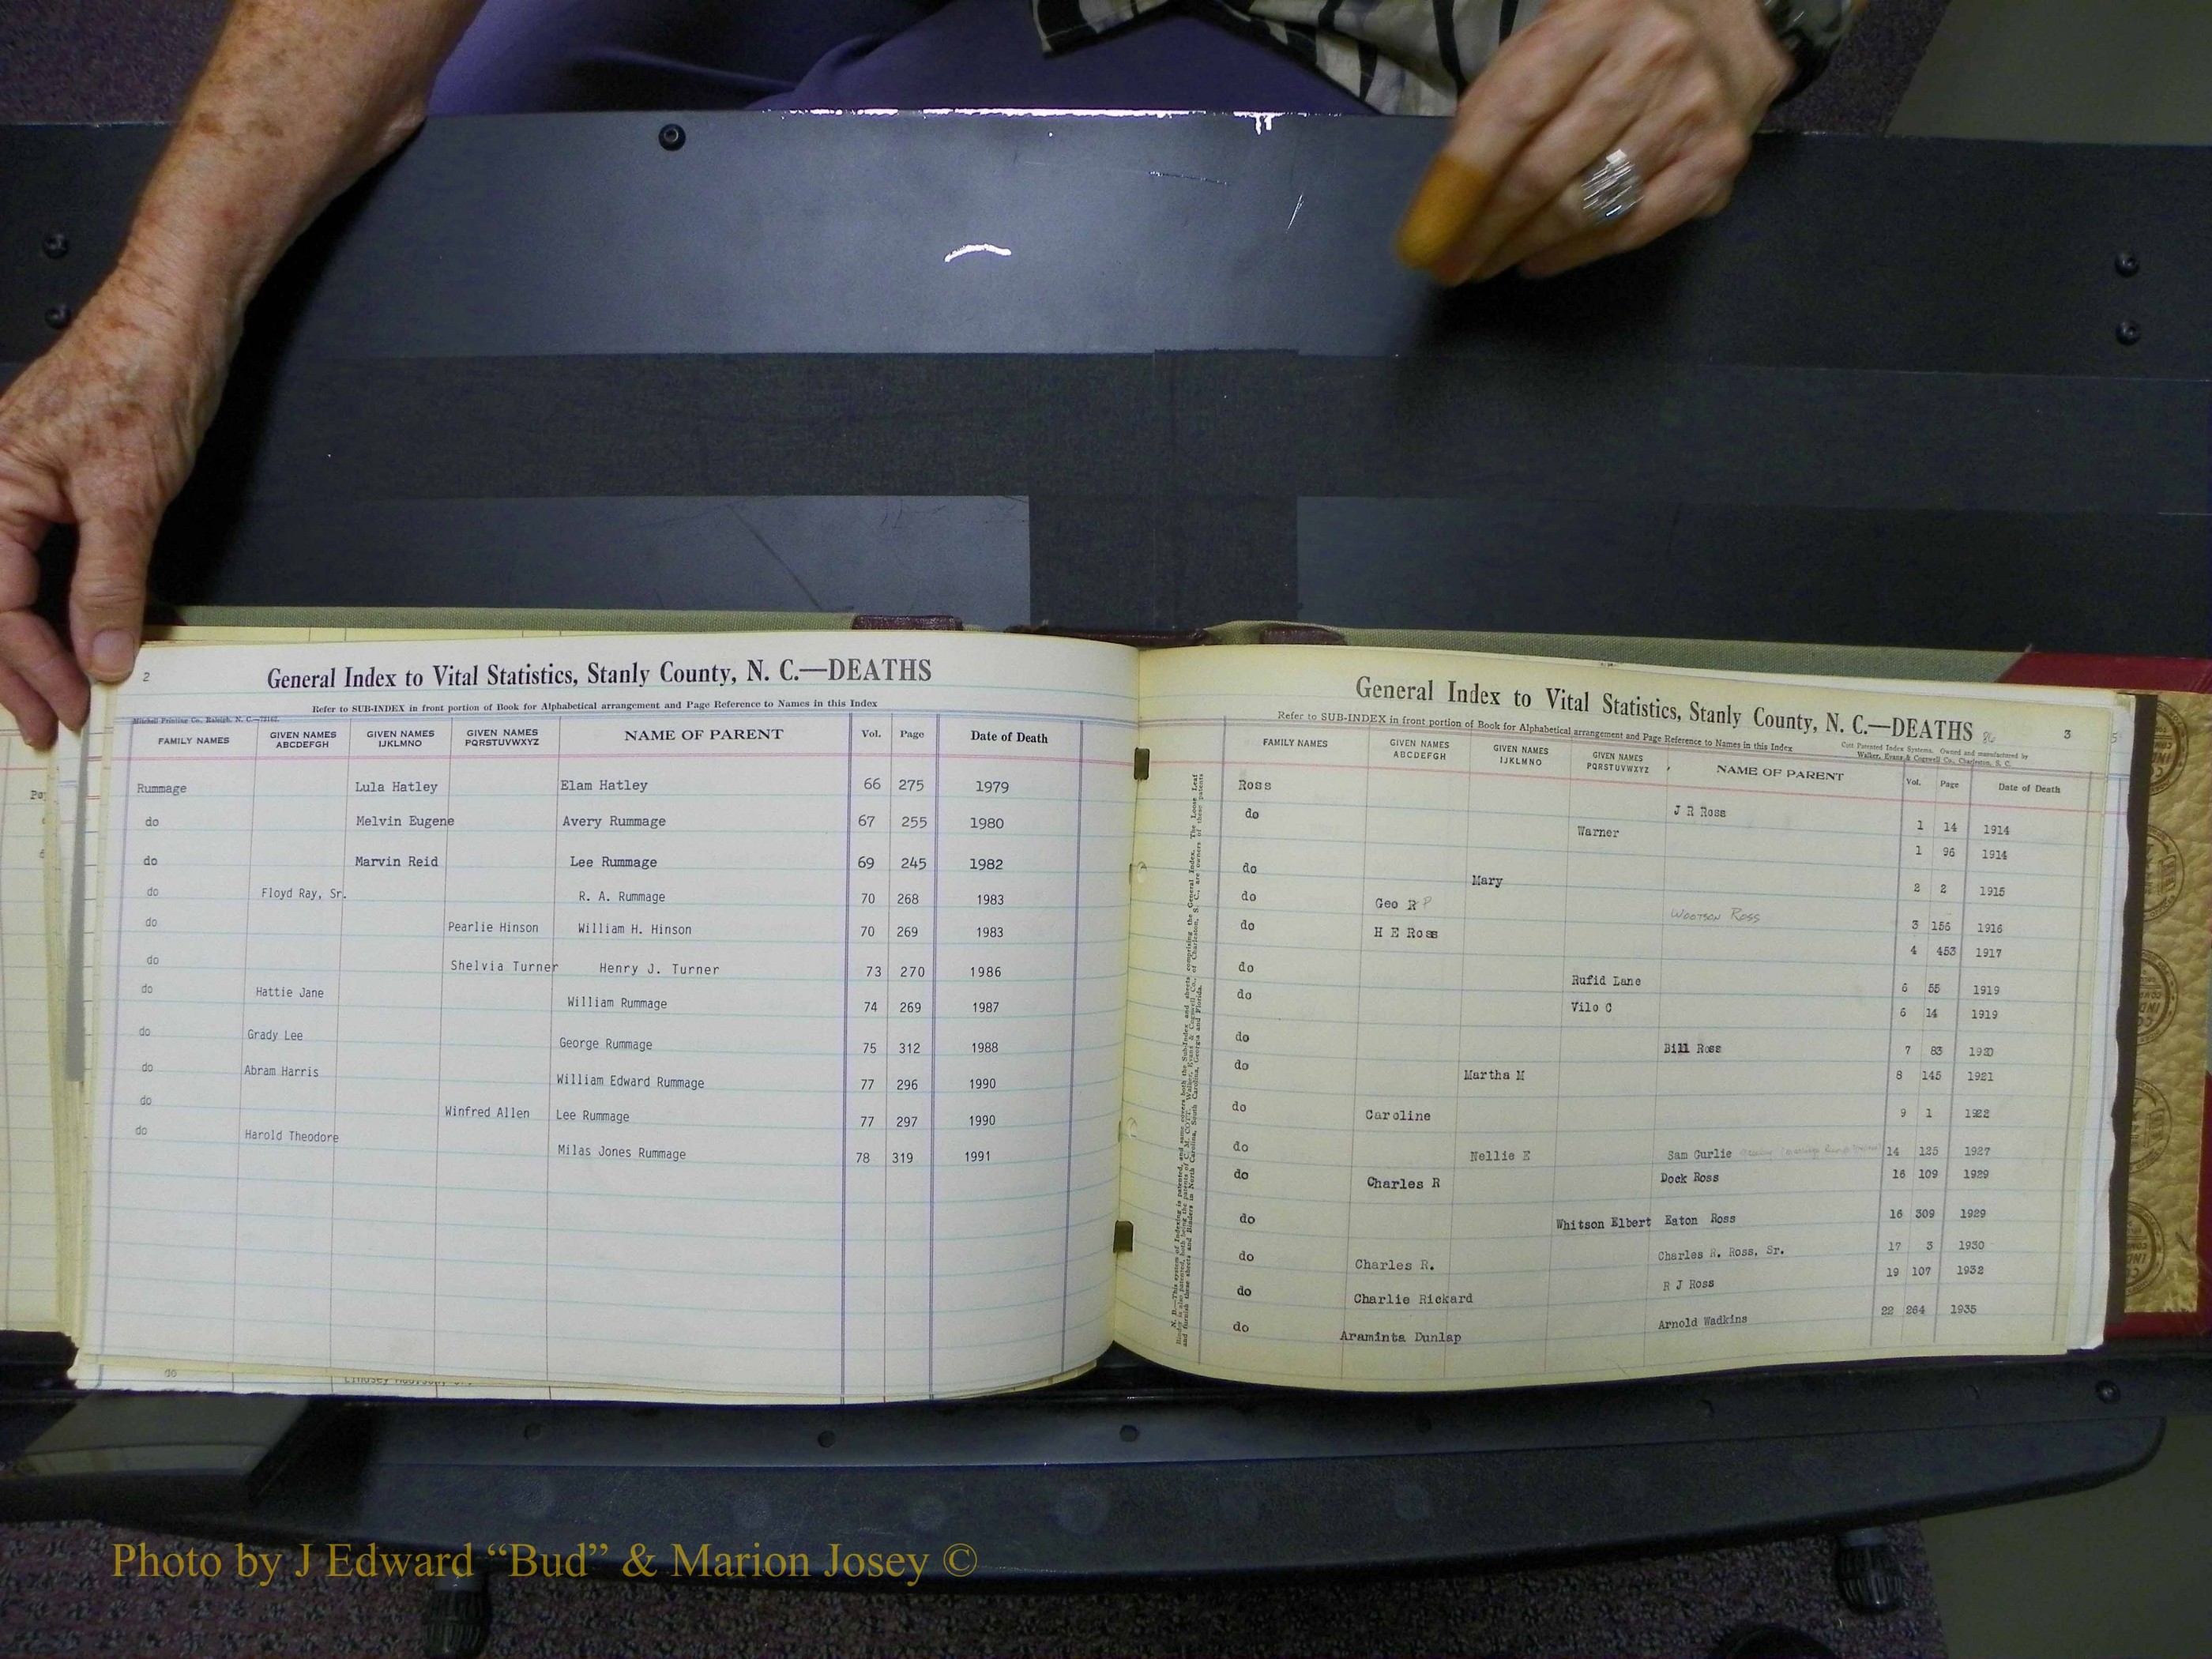 2
General Index to Vital Statistics, Stanly County, N. C.—DEATHS
Refer to SUB-INDEX in front portion of Book for Alphabetical arrangement and Page Reference to Names in this Index
Mitchell Printing Co., Raleigh, N. C.
FAMILY NAMES GIVEN NAMES ABCDEFGH GIVEN NAMES IJKLMNO GIVEN NAMES PQRSTUVWXYZ NAME OF PARENT Vol. Page Date of Death
Rummage Lula Hatley Elam Hatley 66 275 1979
do Melvin Eugene Avery Rummage 67 255 1980
do Marvin Reid Lee Rummage 69 245 1982
do Floyd Ray, Sr. R. A. Rummage 70 268 1983
do Pearlie Hinson William H. Hinson 70 269 1983
do Shelvia Turner Henry J. Turner 73 270 1986
do Hattie Jane William Rummage 74 269 1987
do Grady Lee George Rummage 75 312 1988
do Abram Harris William Edward Rummage 77 296 1990
do Winfred Allen Lee Rummage 77 297 1990
do Harold Theodore Milas Jones Rummage 78 319 1991
do
General Index to Vital Statistics, Stanly County, N. C.—DEATHS 3
Refer to SUB-INDEX in front portion of Book for Alphabetical arrangement and Page Reference to Names in this Index
Cott Patented Index Systems. Owned and manufactured by
Walker, Evans & Cogswell Co., Charleston, S. C.
FAMILY NAMES GIVEN NAMES ABCDEFGH GIVEN NAMES IJKLMNO GIVEN NAMES PQRSTUVWXYZ NAME OF PARENT Vol. Page Date of Death
Ross J R Ross 1 14 1914
do Warner 1 96 1914
do Mary 2 2 1915
do Geo R P Wootson Ross 3 156 1916
do H E Ross 4 453 1917
do Rufid Lane 6 55 1919
do Vilo C 6 14 1919
do Bill Ross 7 83 1920
do Martha M 8 145 1921
do Caroline 9 1 1922
do Nellie E Sam Gurlie 14 125 1927
do Charles R Dock Ross 16 109 1929
do Whitson Elbert Eaton Ross 16 309 1929
do Charles R. Charles R. Ross, Sr. 17 3 1930
do Charlie Rickard R J Ross 19 107 1932
do Araminta Dunlap Arnold Wadkins 22 264 1935
Photo by J Edward “Bud” & Marion Josey ©